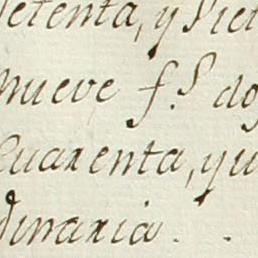 setenta, y siet
nueve f.s do
Cuarenta, y u
dinaria.